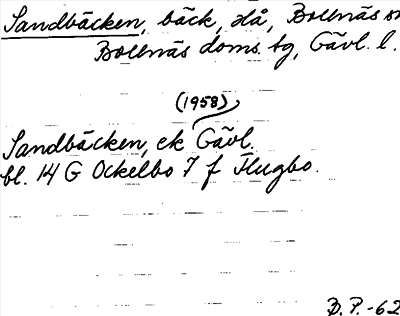 Sandbäcken, bäck, då, Bollnäs sn
Bollnäs doms. tg, Gävl. l.
(1958)
Sandbäcken, ek Gävl.
bl. 14 G Ockelbo 7 f Flugbo.
B.P.-62